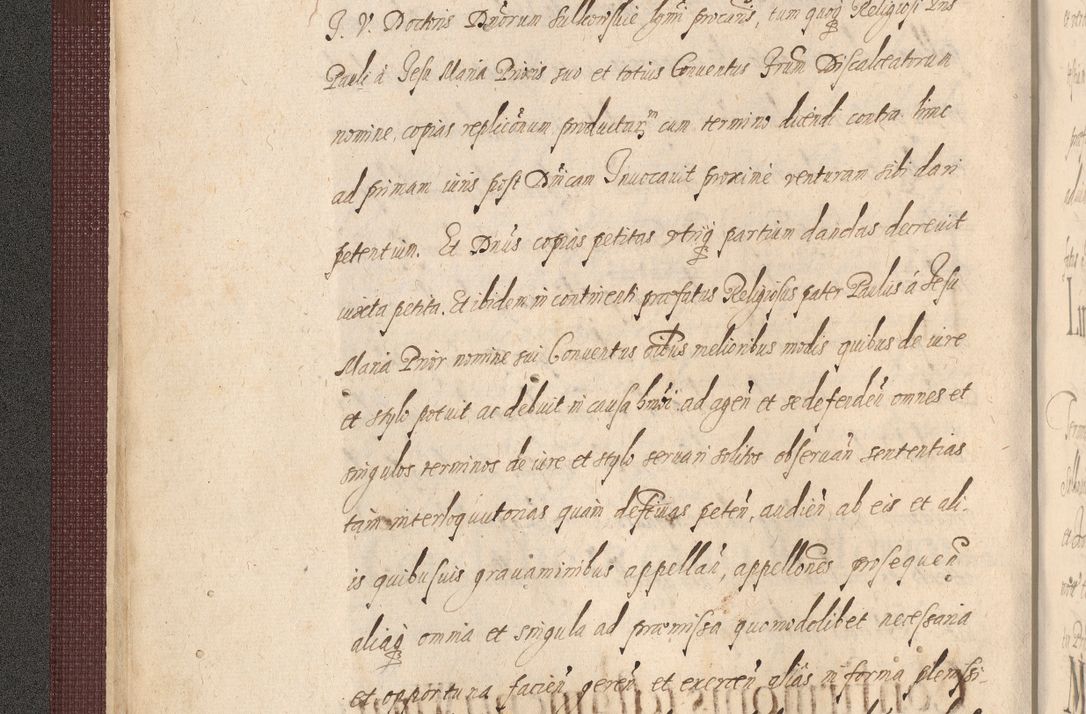 J. V. Doctris Dnorum sui procuris, tum quoq Religiosi Pris
Pauli à Jesu Maria Prioris suo et totius Conventus Frum Discalceatorum
nomine, copias repliconum productar. cum termino dicendi contra hinc
ad primam iuris post Dnicam Invocavit proximè venturam sibi dari
petentium. Et Dnus copias petitas utriq partium dandas decrevit
iuxta petita. Et ibidem in continenti præfatus Religiosus pater Paulus á Jesu
Maria Prior nomine sui Conventus oibus melioribus modis quibus de iure
et stylo potuit ac debuit in causa hmoi ad agen et se defenden omnes et
singulos terminos de iure et stylo servari solitos observan sententias
tam interloquutorias quàm deffinivas peten, audien, ab eis et ali-
is quibusuis gravaminibus appellan, appellones prosequen
aliaq omnia et singula ad præmissa quomodolibet necessaria
et opportuna facien geren et exercen aliàs in forma plenissi-